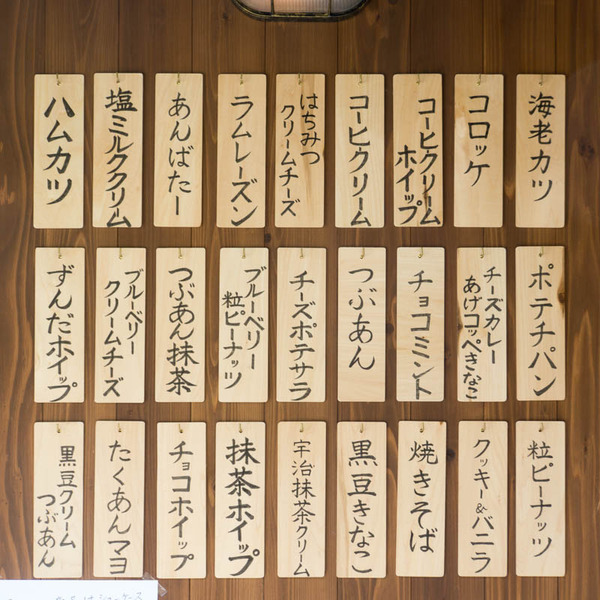 海老カツ
コロッケ
コーヒクリーム
ホイップ
コーヒクリーム
はちみつ
クリームチーズ
ラムレーズン
あんばたー
塩ミルククリーム
ハムカツ
ポテチパン
チーズカレー
あげコッペきなこ
チョコミント
つぶあん
チーズポテサラ
ブルーベリー
粒ピーナッツ
つぶあん抹茶
ブルーベリー
クリームチーズ
ずんだホイップ
粒ピーナッツ
クッキー&バニラ
焼きそば
黒豆きなこ
宇治抹茶クリーム
抹茶ホイップ
チョコホイップ
たくあんマヨ
黒豆クリーム
つぶあん